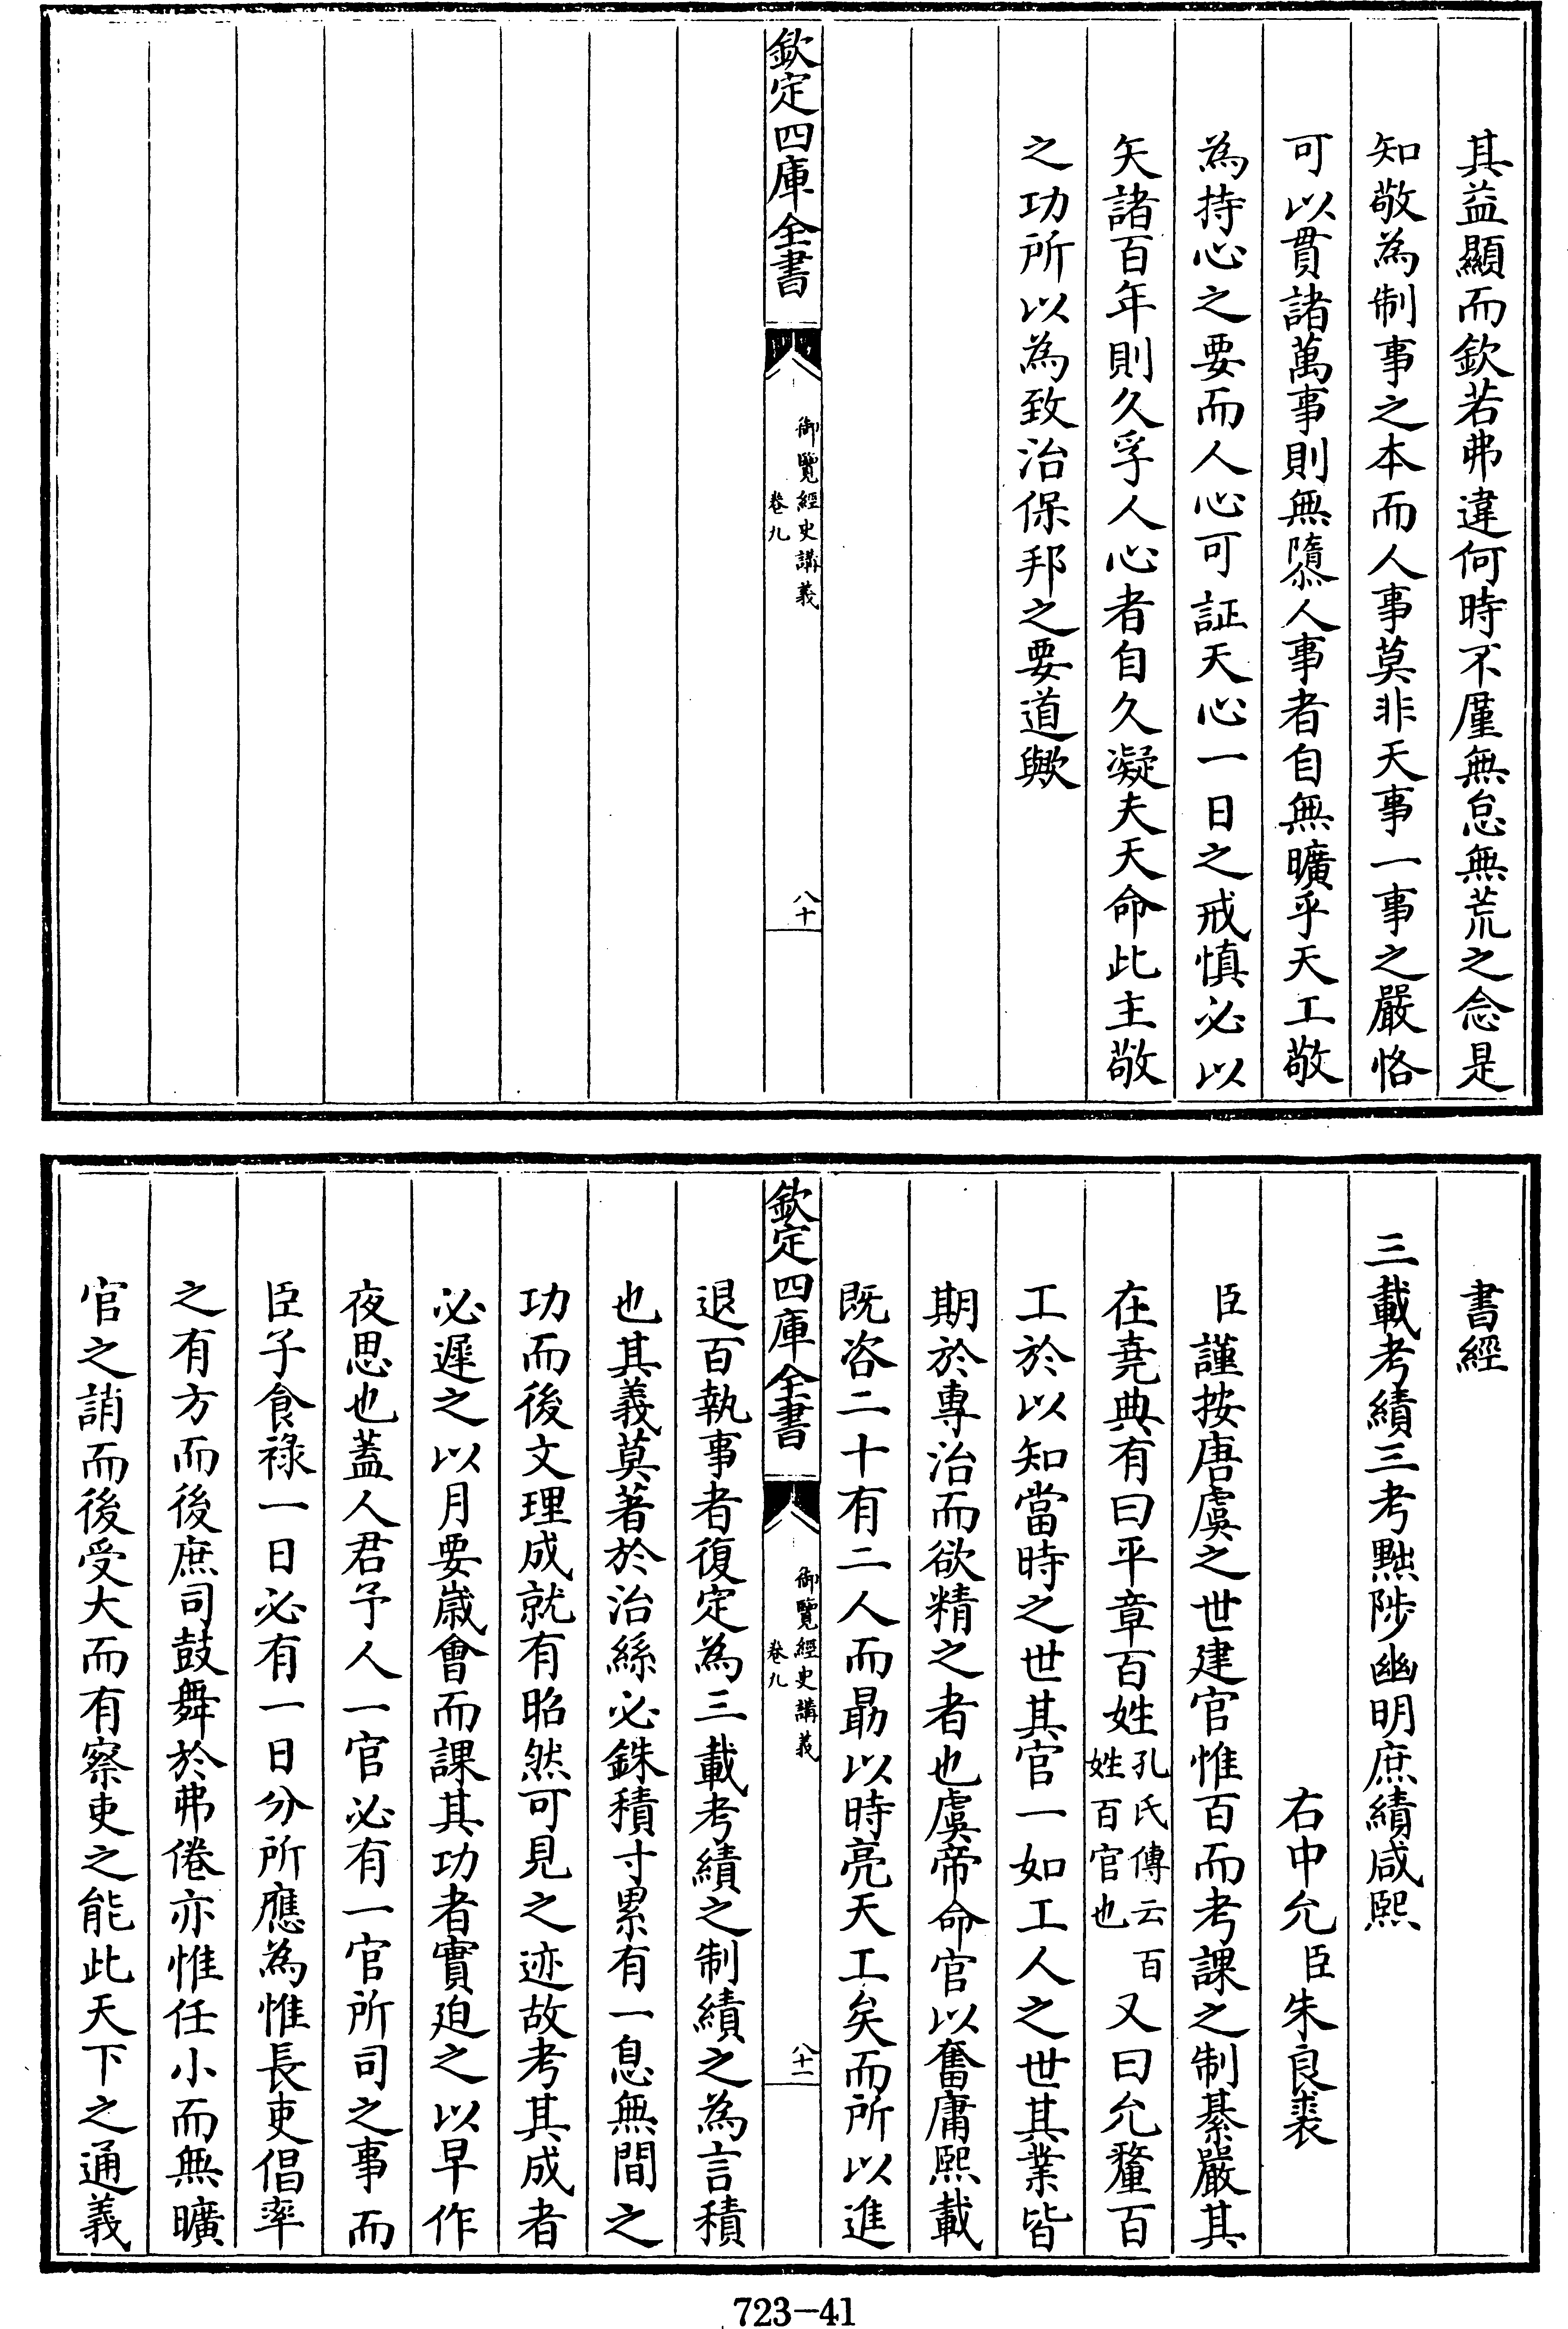 其益顯而欽若弗違何時不廑無怠無荒之念是
知敬為制事之本而人事莫非天事一事之嚴恪
可以貫諸萬事則無隳人事者自無曠乎天工敬
為持心之要而人心可証天心一日之戒慎必以
矢諸百年則久孚人心者自久凝夫天命此主敬
之功所以為致治保邦之要道歟
欽定四庫全書
御覽經史講義
卷九
八十
書經
三載考績三考黜陟幽明庶績咸熙
右中允臣朱良裘
臣謹按唐虞之世建官惟百而考課之制綦嚴其
在堯典有曰平章百姓孔氏傳云百姓百官也又曰允釐百
工於以知當時之世其官一如工人之世其業皆
期於專治而欲精之者也虞帝命官以奮庸熙載
既咨二十有二人而勗以時亮天工矣而所以進
欽定四庫全書
御覽經史講義
卷九
八十一
退百執事者復定為三載考績之制績之為言積
也其義莫著於治絲必銖積寸累有一息無間之
功而後文理成就有昭然可見之迹故考其成者
必遲之以月要歲會而課其功者實迫之以早作
夜思也蓋人君予人一官必有一官所司之事而
臣子食祿一日必有一日分所應為惟長吏倡率
之有方而後庶司鼓舞於弗倦亦惟任小而無曠
官之誚而後受大而有察吏之能此天下之通義
723-41